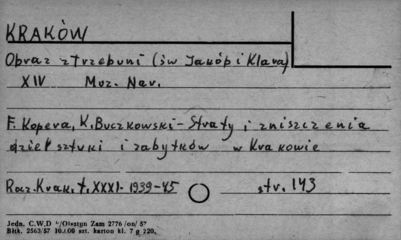 KRAKÓW
Obraz z Trzebuni (św Jakób i Klara)
XIV Muz. Nar.
F. Kopera, K. Buczkowski - Straty i zniszczenia
dzieł sztuki i zabytków w Krakowie
Rocz. Krak. t. XXXI. 1939-45 str. 143
Jedn. C.W.D Olsztyn Zam 2776 /on/ 57
Błtk. 2563/57 10.000 szt. karton kl. 7 g. 220.